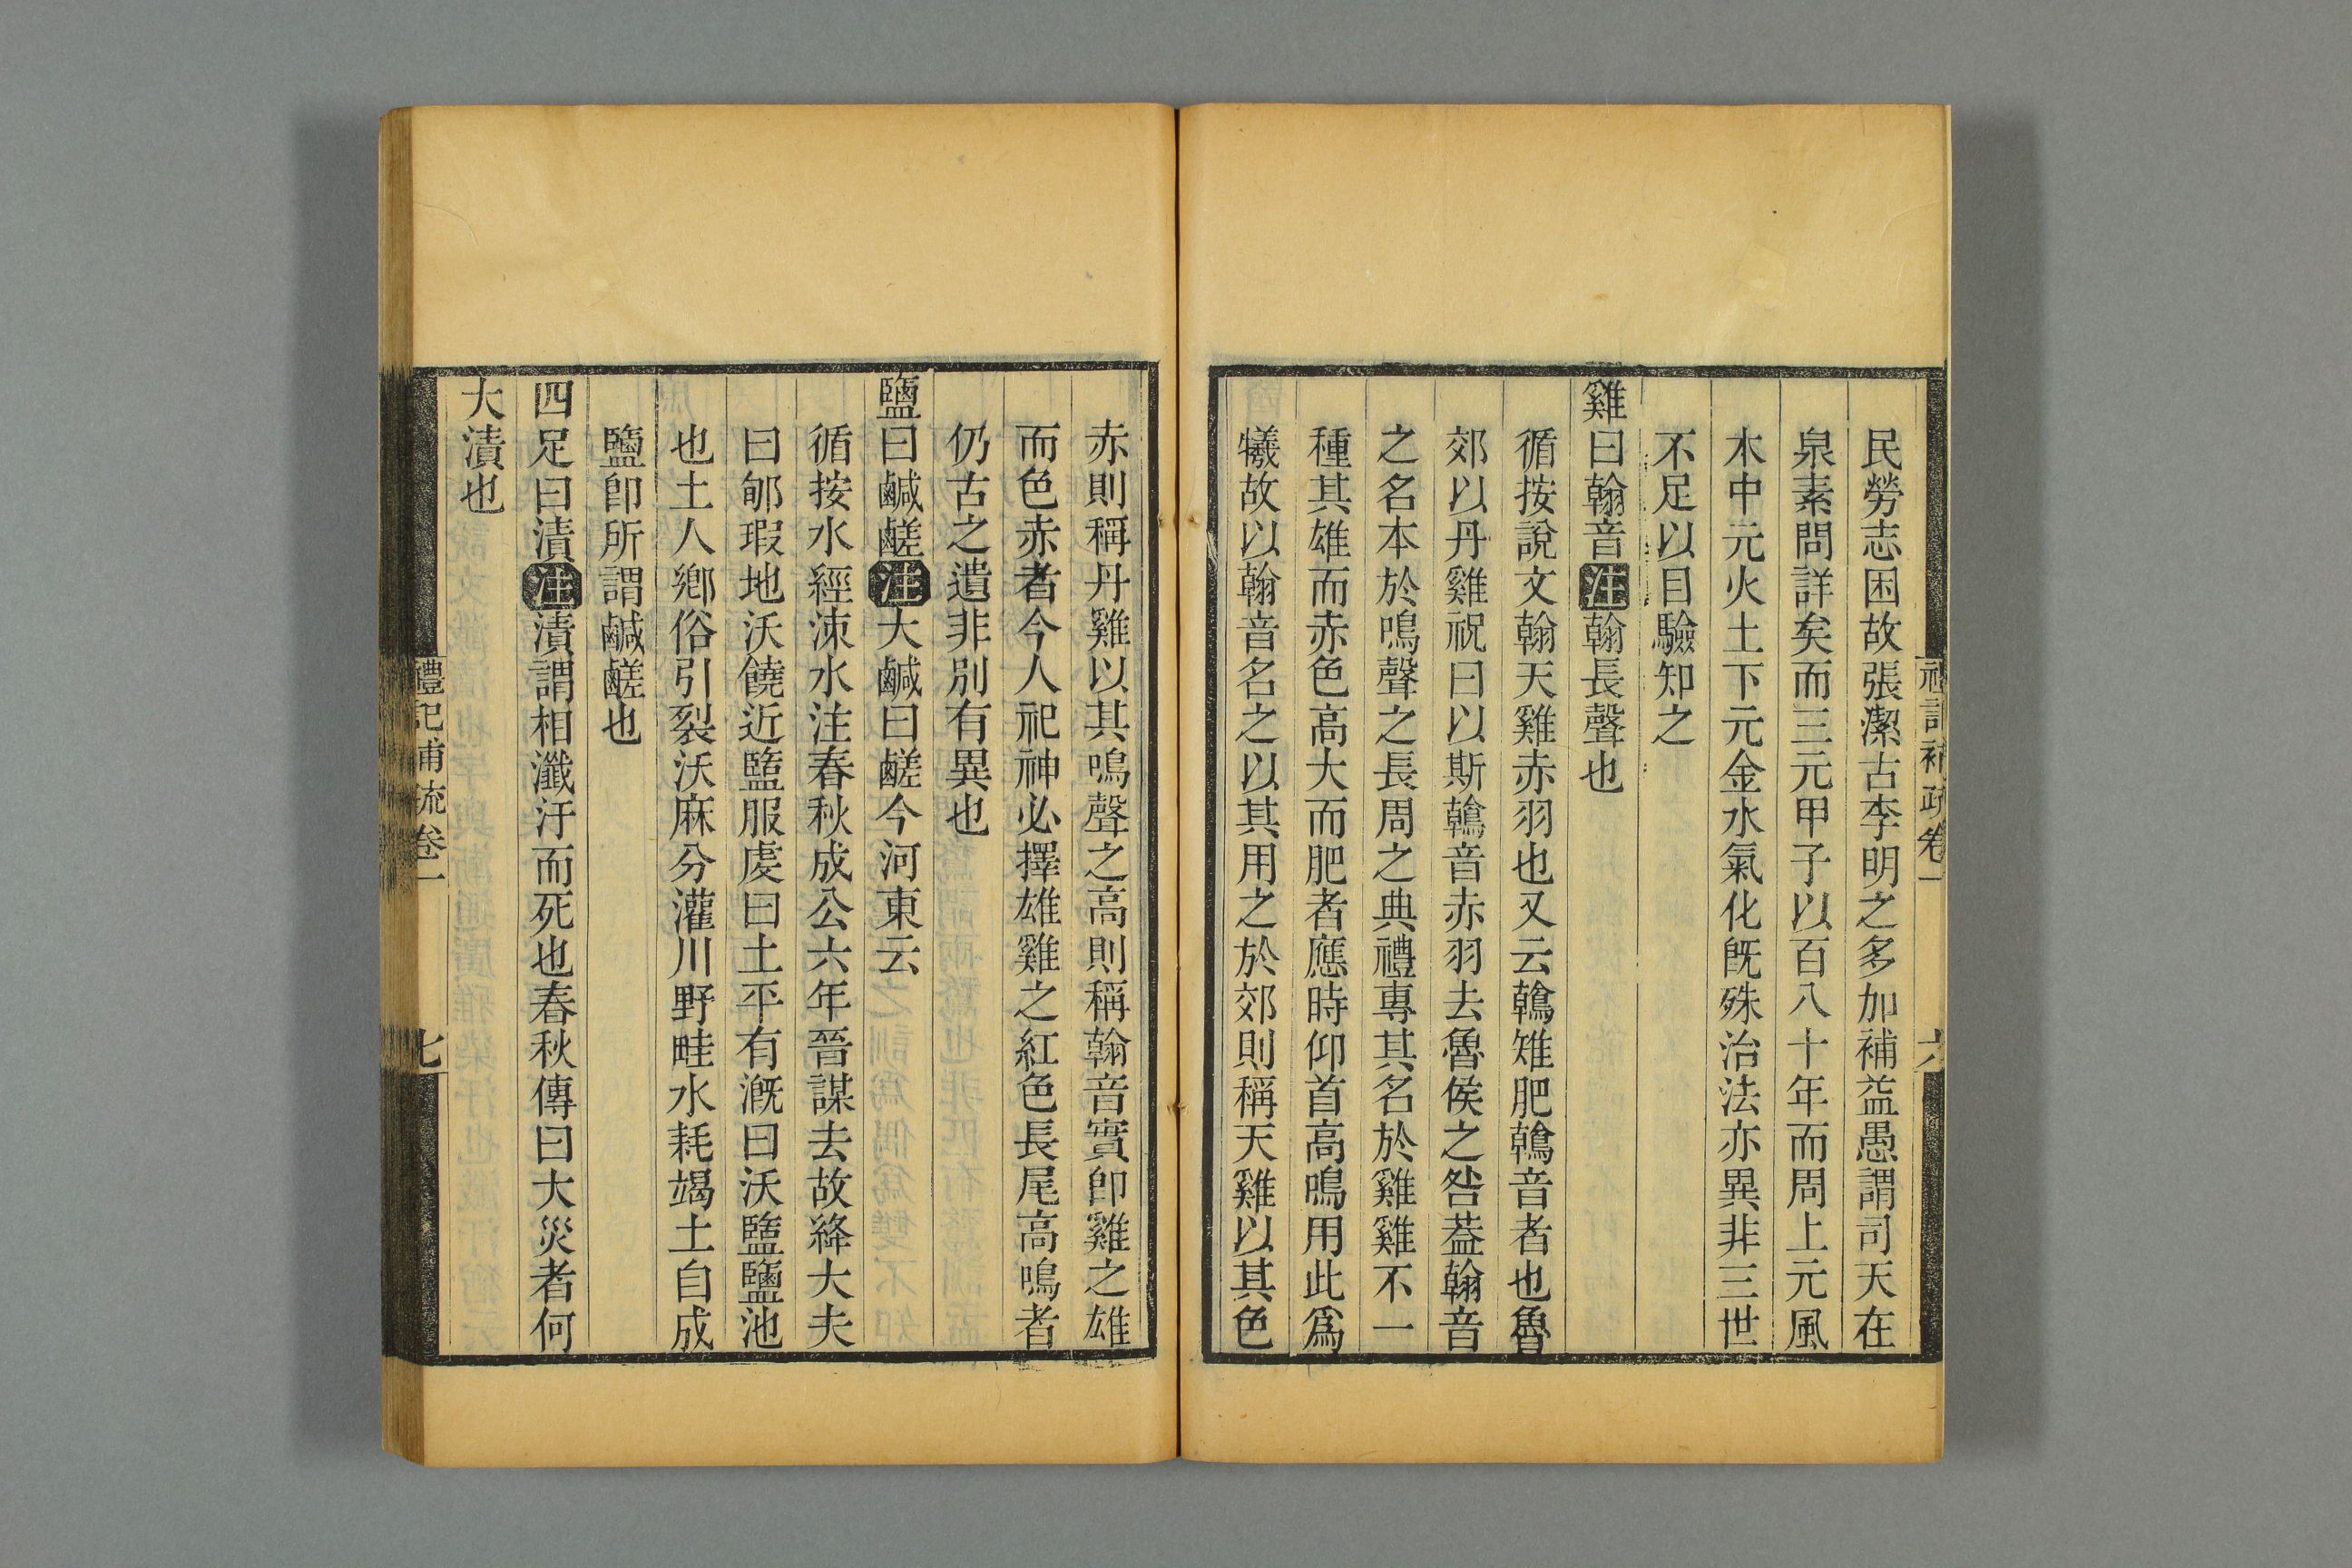 禮記補疏卷一
六
民勞志困故張潔古李明之多加補益愚謂司天在
泉素問詳矣而三元甲子以百八十年而周上元風
木中元火土下元金水氣化旣殊治法亦異非三世
不足以目驗知之
雞曰翰音注翰長聲也
循按說文翰天雞赤羽也又云鶾雉肥鶾音者也魯
郊以丹雞祝曰以斯鶾音赤羽去魯侯之咎葢翰音
之名本於鳴聲之長周之典禮專其名於雞雞不一
種其雄而赤色高大而肥者應時仰首高鳴用此爲
犧故以翰音名之以其用之於郊則稱天雞以其色
赤則稱丹雞以其鳴聲之高則稱翰音實卽雞之雄
而色赤者今人祀神必擇雄雞之紅色長尾高鳴者
仍古之遺非別有異也
鹽曰鹹鹺注大鹹曰鹺今河東云
循按水經涑水注春秋成公六年晉謀去故絳大夫
曰郇瑕地沃饒近盬服虔曰土平有漑曰沃盬鹽池
也土人鄕俗引裂沃麻分灌川野畦水耗竭土自成
鹽卽所謂鹹鹺也
四足曰漬注漬謂相瀸汙而死也春秋傳曰大災者何
大漬也
禮記補疏卷一
七